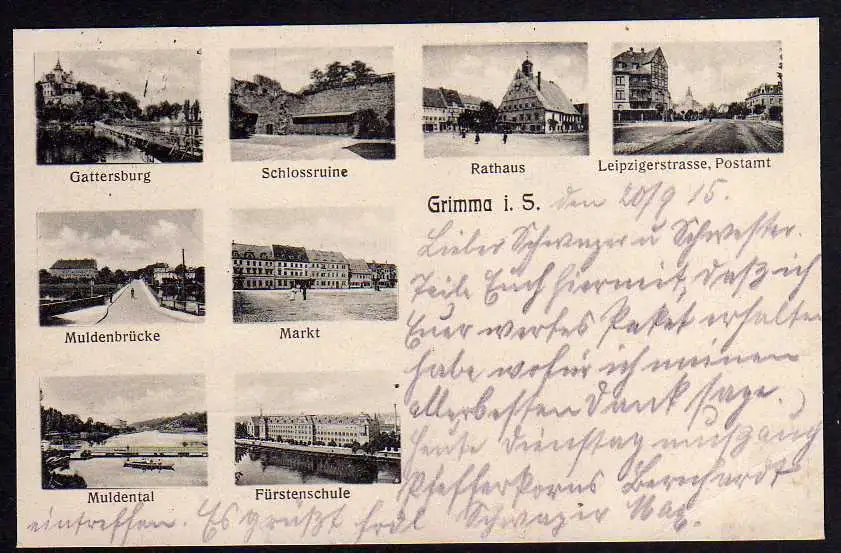 Gattersburg
Schlossruine
Rathaus
Leipzigerstrasse, Postamt
Muldenbrücke
Markt
Muldental
Fürstenschule
Grimma i. S. den 20/9 15.
Lieber Schwager u Schwester.
Teile Euch hiermit, daß ich
Euer wertes Paket erhalten
habe wofür ich meinen
allerbesten Dank sage.
Heute Dienstag
Pfefferkorns Bernhardt
eintreffen. Es grüßt Schwager Max